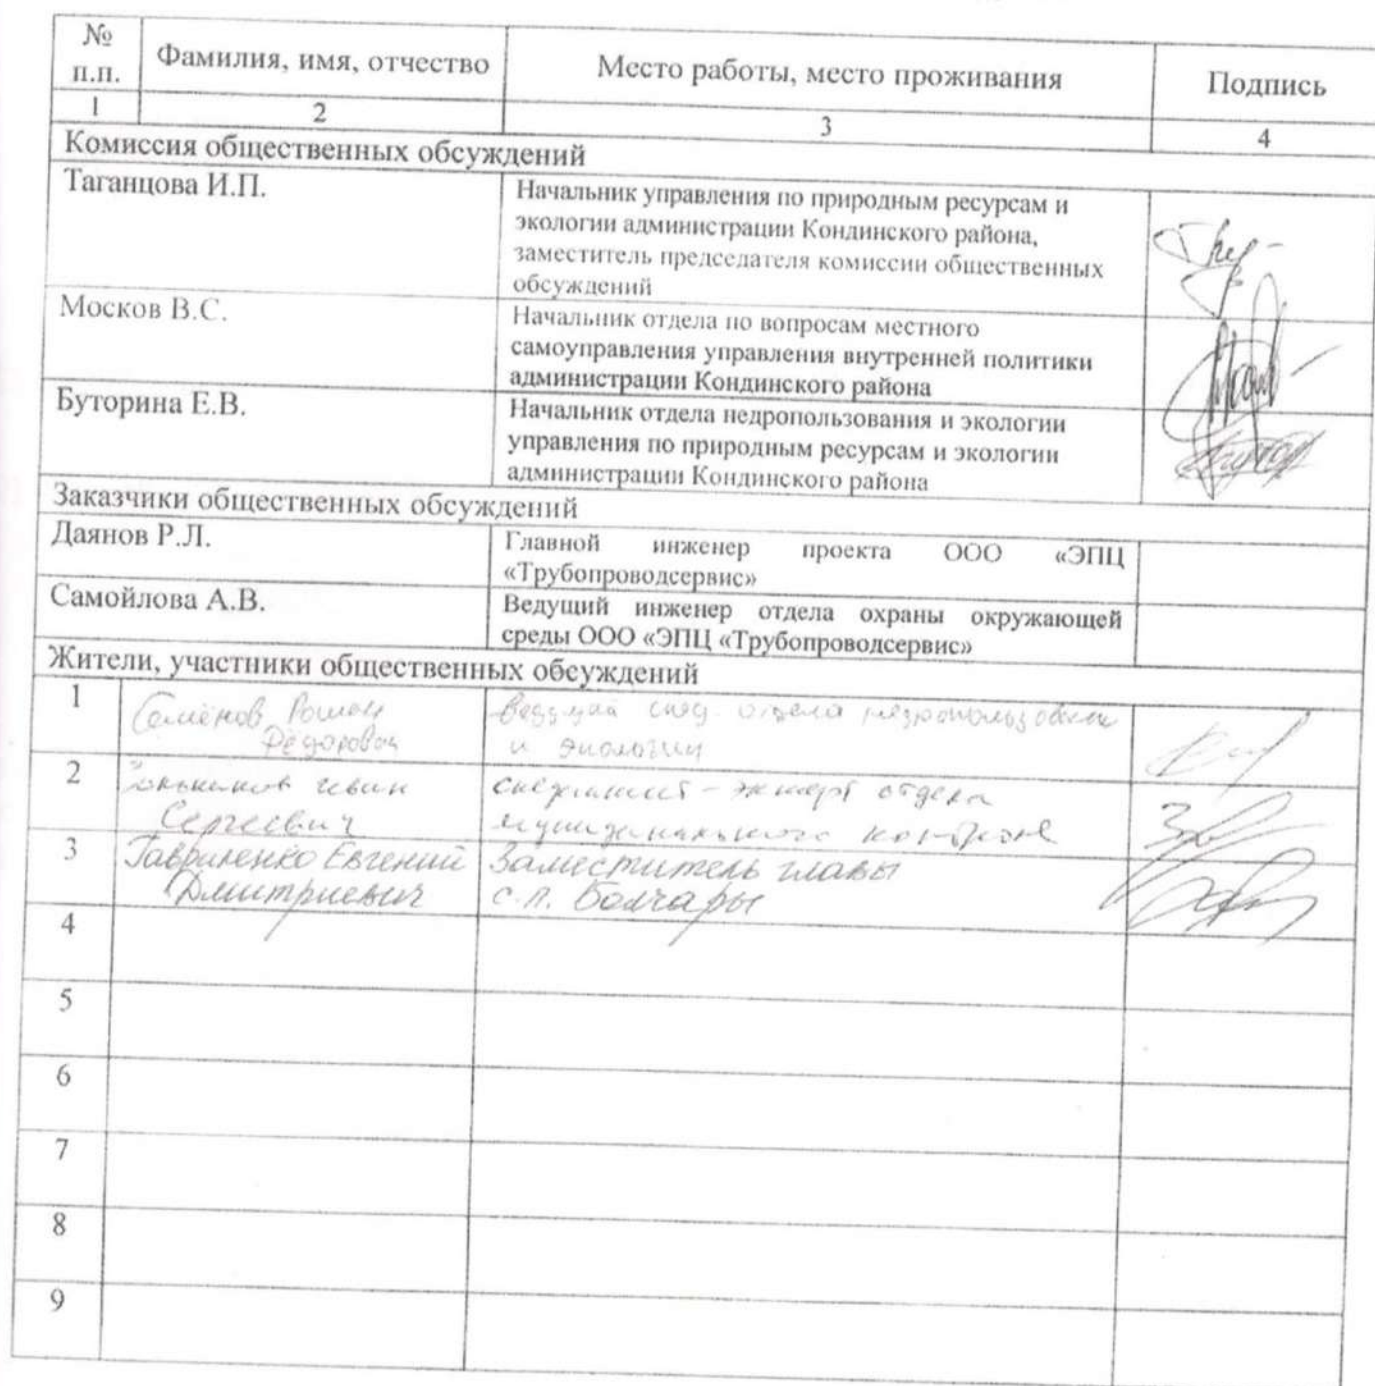 №
п.п.
Фамилия, имя, отчество
Место работы, место проживания
Подпись
1
2
3
4
Комиссия общественных обсуждений
Таганцова И.П.
Начальник управления по природным ресурсам и
экологии администрации Кондинского района,
заместитель председателя комиссии общественных
обсуждений
Москов В.С.
Начальник отдела по вопросам местного
самоуправления управления внутренней политики
администрации Кондинского района
Буторина Е.В.
Начальник отдела недропользования и экологии
управления по природным ресурсам и экологии
администрации Кондинского района
Заказчики общественных обсуждений
Даянов Р.Л.
Главной инженер проекта ООО «ЭПЦ
«Трубопроводсервис»
Самойлова А.В.
Ведущий инженер отдела охраны окружающей
среды ООО «ЭПЦ «Трубопроводсервис»
Жители, участники общественных обсуждений
1
Семёнов Роман
Федорович
Ведущий спец. отдела недропользования
и экологии
2
Сергеевич
специалист-эксперт отдела
муниципального контроля
3
Гавриленко Евгений
Дмитриевич
Заместитель главы
с.п. Болчары
4
5
6
7
8
9